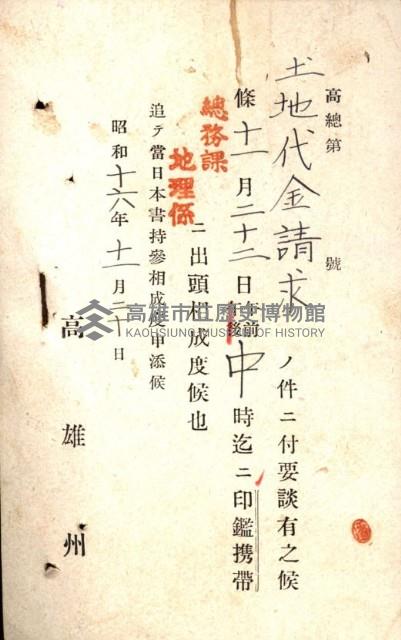 高總第　　　號
土地代金請求ノ件ニ付要談有之候
條十一月二十二日午前後中時迄ニ印鑑携帶
總務課
地理係
ニ出頭相成度候也
追テ當日本書持參相成度申添候
昭和十六年十一月二十日
高雄州
高雄市立歷史博物館
KAOHSIUNG MUSEUM OF HISTORY